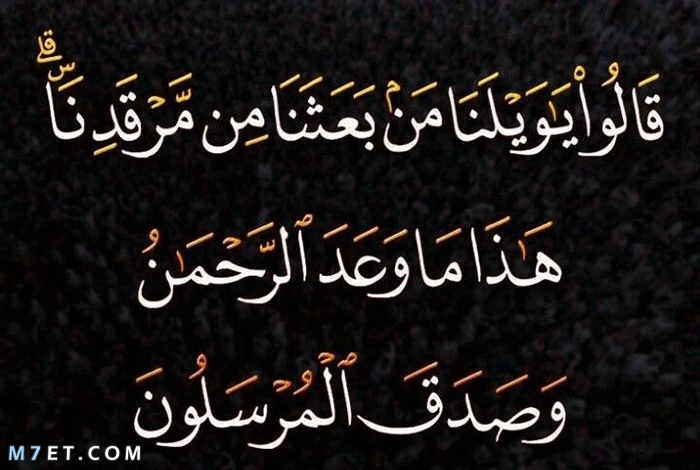 قَالُوا۟ يَـٰوَيْلَنَا مَنۢ بَعَثَنَا مِن مَّرْقَدِنَا ۜ ۗ
هَـٰذَا مَا وَعَدَ ٱلرَّحْمَـٰنُ
وَصَدَقَ ٱلْمُرْسَلُونَ
M7ET.COM